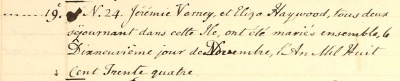 19e N. 24. Jérémie Varney, et Eliza Haywood, tous deux
séjournant dans cette Ile, ont été mariés ensemble, le
Dixneuvième jour de Novembre, l'An Mil Huit
Cent Trente quatre